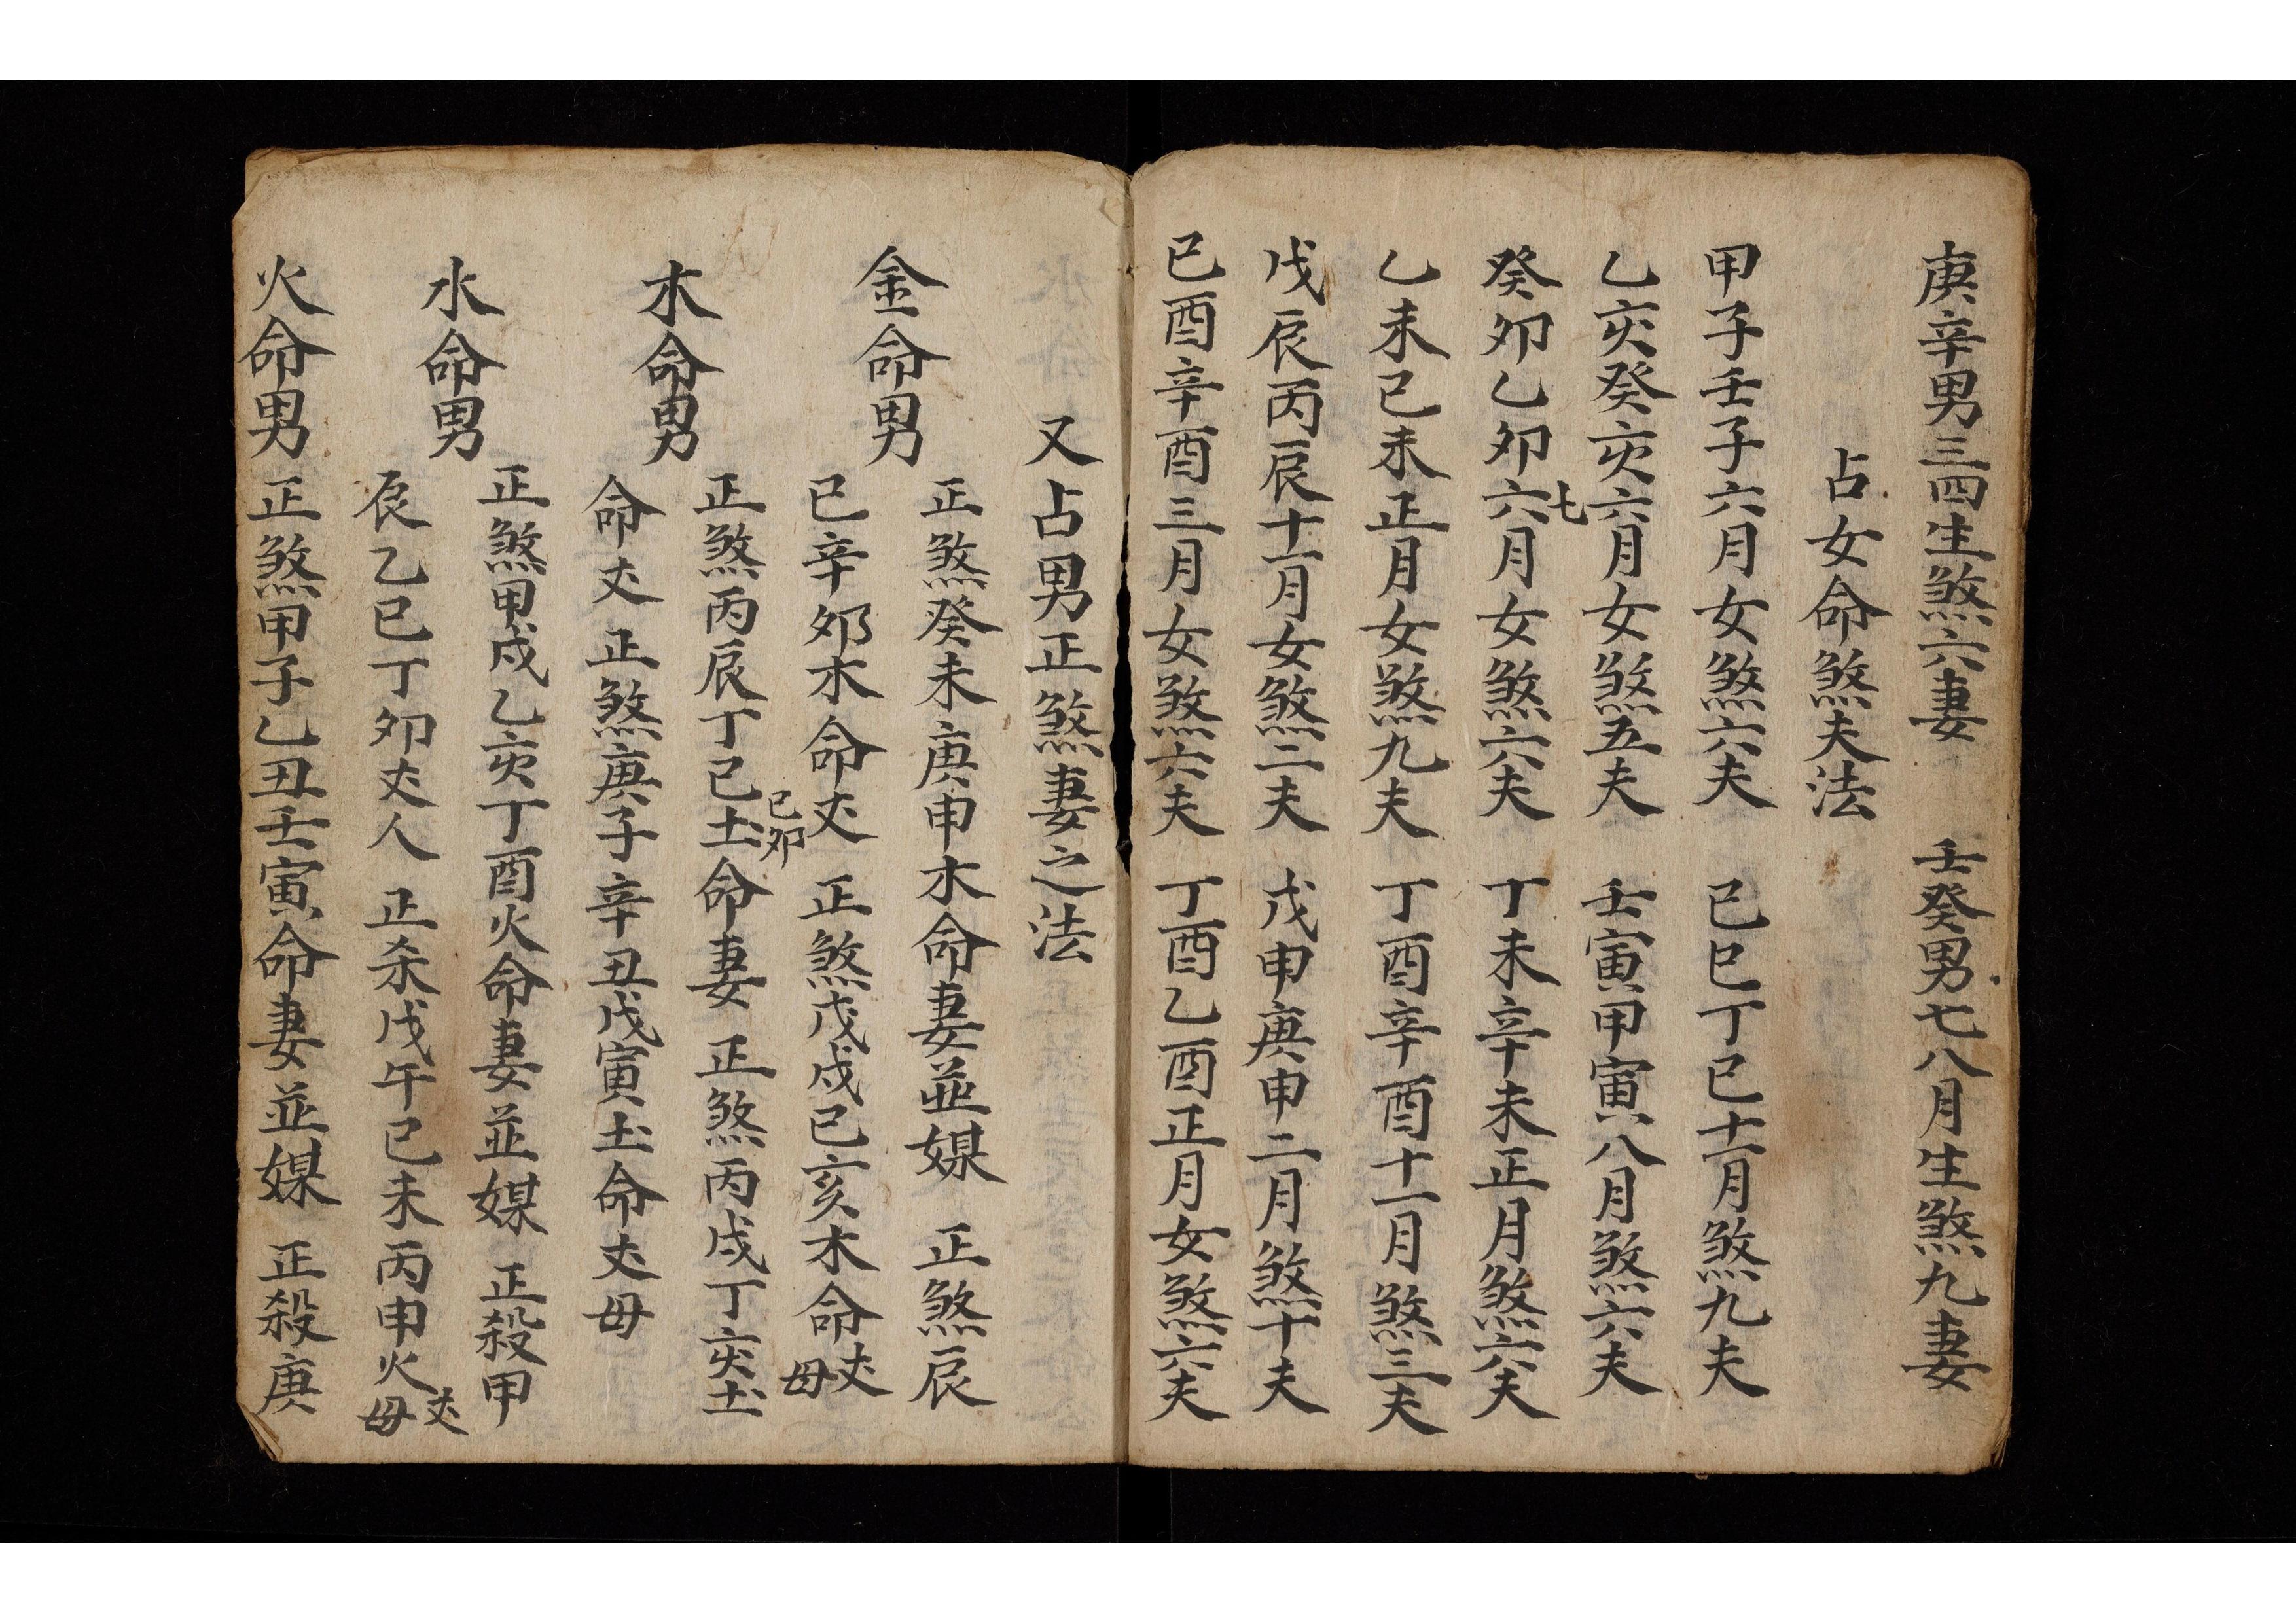 庚辛男三四生煞六妻　壬癸男七八月生煞九妻
占女命煞夫法
甲子壬子六月女煞六夫　己巳丁巳十一月煞九夫
乙亥癸亥六月女煞五夫　壬寅甲寅八月煞六夫
七
癸卯乙卯六月女煞六夫　丁未辛未正月煞六夫
乙未己未正月女煞九夫　丁酉辛酉十一月煞三夫
戊辰丙辰十一月女煞二夫　戊申庚申二月煞十夫
己酉辛酉三月女煞六夫　丁酉乙酉正月女煞六夫
又占男正煞妻之法
金命男　正煞癸未庚申木命妻並媒　正煞辰
己辛夘木命丈　正煞戊戌己亥木命丈母
己夘
木命男　正煞丙辰丁己土命妻　正煞丙戌丁亥土
命丈　正煞庚子辛丑戊寅土命丈母
水命男　正煞甲戌乙亥丁酉火命妻並媒　正殺甲
辰乙巳丁夘丈人　正杀戊午己未丙申火丈母
火命男　正煞甲子乙丑壬寅命妻並媒　正殺庚